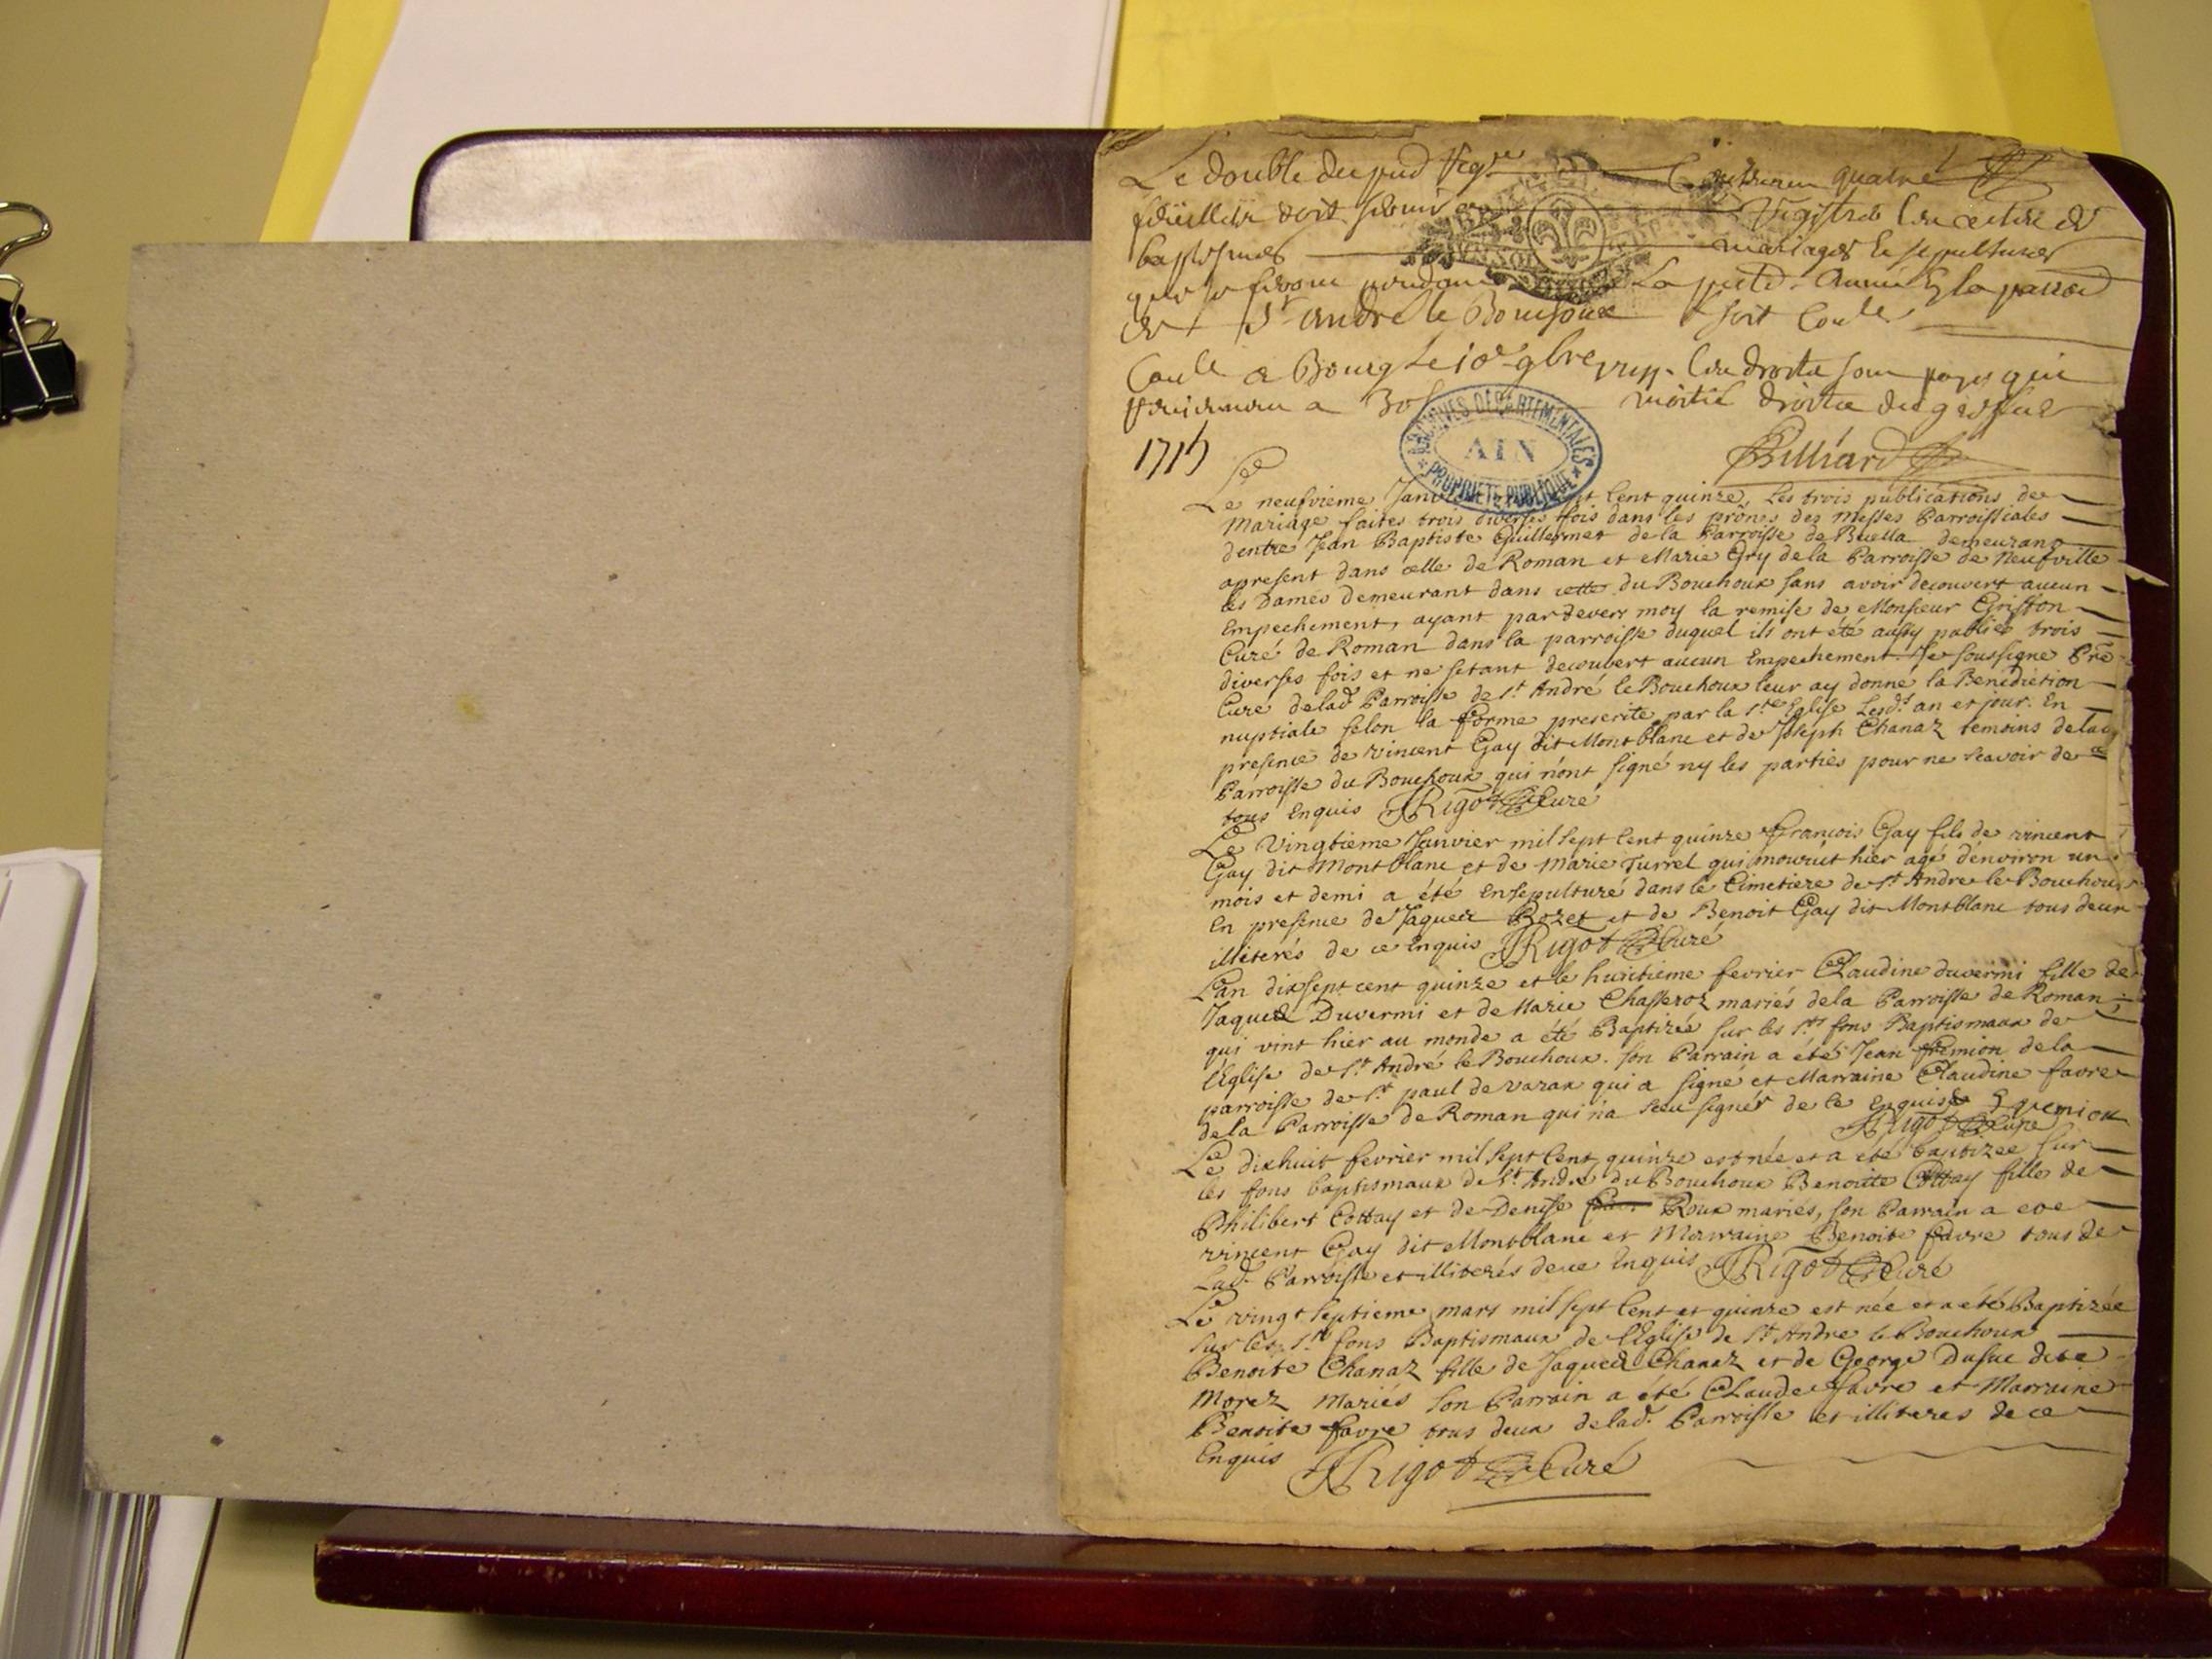 Le double du pnt Regre Contenan quatre
feüillets doit servir a Registre les actes de
baptesmes mariages & sepultures
que se feron pendant La pnte Année En la parroisse
de St André le Bouchoux soit Coule
Coulé a Bourg Le 10e 9bre les droits son payes qui
reviennen a 30s moitié droits du greffier
Billiard
1715
ARCHIVES DÉPARTEMENTALES
AIN
PROPRIÉTÉ PUBLIQUE
Le neufvieme Janvier sept Cent quinze, Les trois publications de
Mariage faites trois diverses fois dans les prônes des Messes Parroissiales
d'entre Jean Baptiste Guillermet de la Parroisse de Buella demeurant
apresent dans celle de Roman et Marie Gry de la Parroisse de Neufville
les Dames demeurant dans cette du Bouchoux sans avoir decouvert aucun
Empechement, ayant pardevers moy la remise de Monsieur Griffon
Curé de Roman dans la parroisse duquel ils ont été aussy publiés trois
diverses fois et ne setant decouvert aucun Empechement. Je soussigne Pre
Cure delad. Parroisse de St André le Bouchoux leur ay donne la Benediction
nuptiale selon la forme prescrite par la Ste Eglise Lesd. an et jour. En
presence de vincent Gay dit Montblanc et de Joseph Chanaz temoins delad
Parroisse du Bouchoux qui n'ont signé ny les parties pour ne scavoir de ce
tous Enquis Rigot Curé
Le Vingtieme Janvier mil sept Cent quinze François Gay fils de vincent
Gay dit Montblanc et de Marie Turrel qui mourût hier agé d'environ un
mois et demi a été Ensepulturé dans le Cimetiere de St Andre le Bouchoux
En presence de Jaques Bozet et de Benoit Gay dit Montblanc tous deux
illiterés de ce Enquis Rigot Curé
L'an dixsept cent quinze et le huitieme fevrier Claudine duvermi fille de
Jaques Duvermi et de Marie Chasseroz mariés dela Parroisse de Roman
qui vint hier au monde a été Baptizée sur les Sts fons Baptismaux de
l'Eglise de St André le Bouchoux. son Parrain a été Jean fremion dela
parroisse de St paul de varax qui a signé et Marraine Claudine favre
dela Parroisse de Roman qui n'a sceu signer de Ce Enquise fremion
Rigot Curé
Le dixhuit fevrier mil sept Cent quinze est née et a été baptizee sur
les fons baptismaux de St André du Bouchoux Benoitte Cottay fille de
Philibert Cottay et de Denise Roux mariés, son Parrain a ete
vincent Gay dit Montblanc et Marraine Benoite favre tous de
Lad. Parroisse et illiterés de ce Enquis Rigot Curé
Le vingt septieme mars mil sept Cent et quinze est née et a été Baptizée
sur les Sts fons Baptismaux de l'Eglise de St Andre le Bouchoux
Benoite Chanaz fille de Jaques Chanaz et de George Dufuc dite
Morez Mariés son Parrain a été Claude favre et Marraine
Benoite favre tous deux delad. Parroisse et illiteres de ce
Enquis Rigot Curé